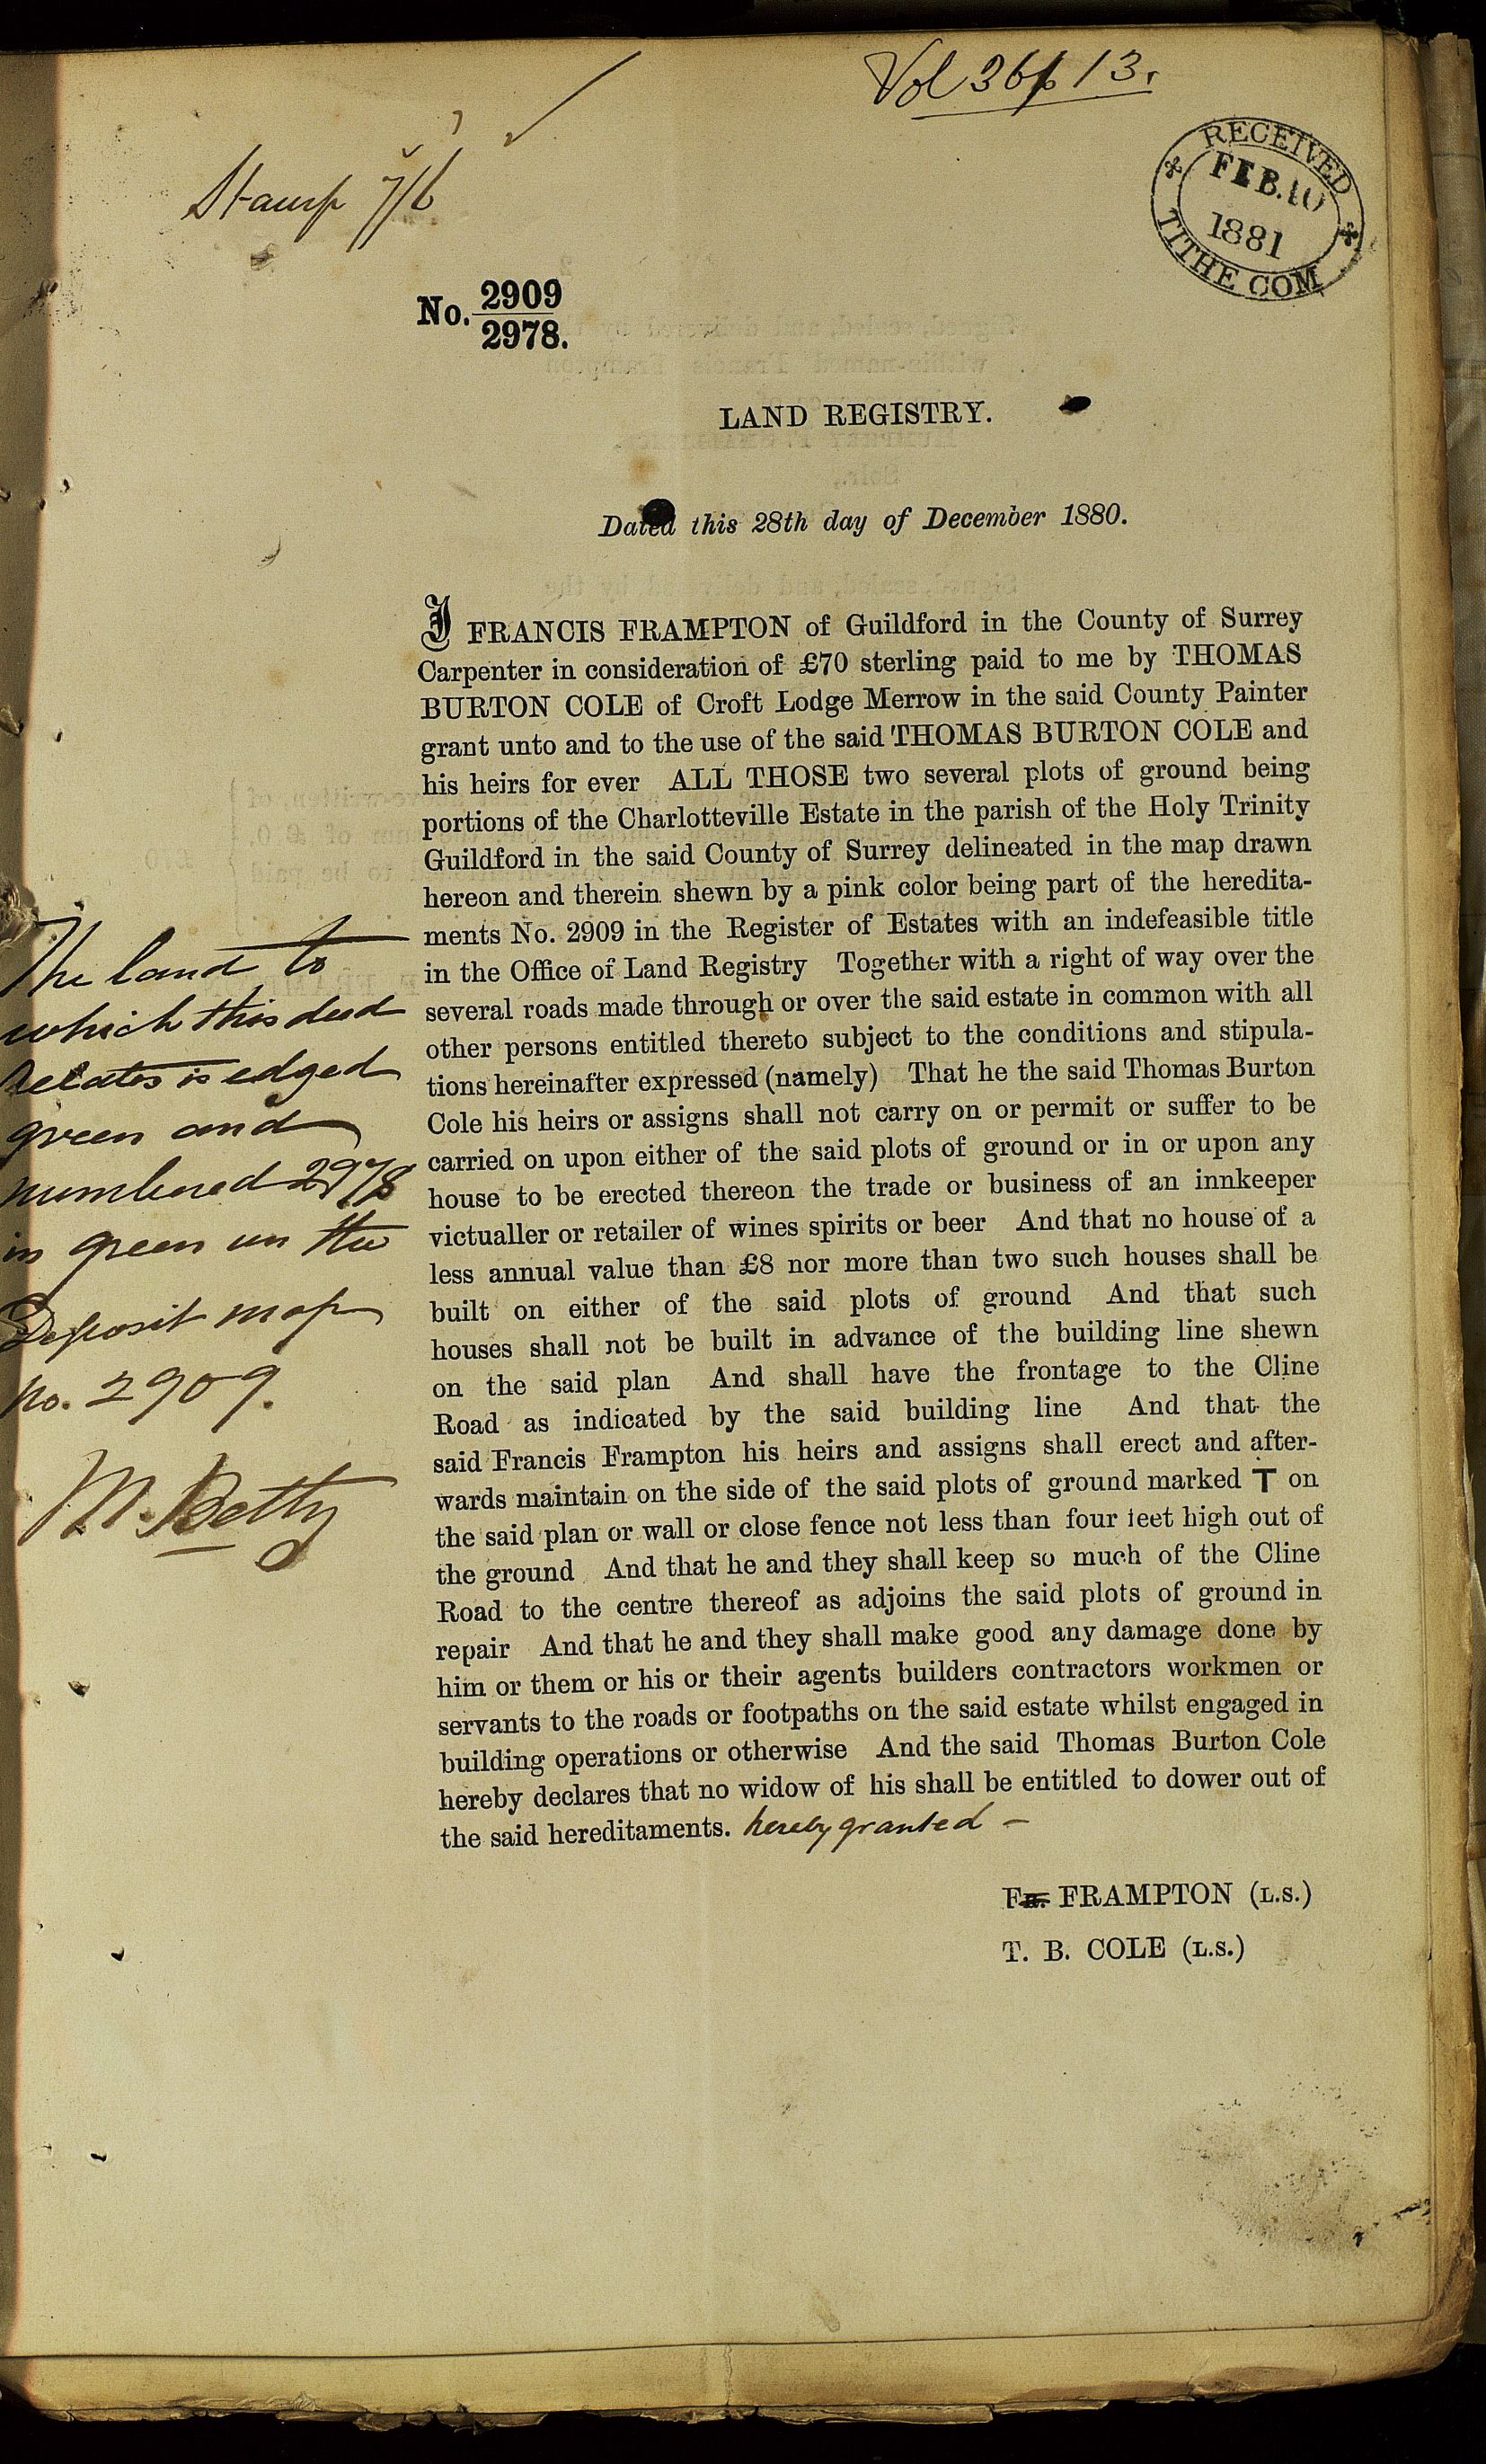 Vol 36 p 13.
Stamp 7/6
RECEIVED
FEB. 10
1881
TITHE COM
No. 2909
2978.
LAND REGISTRY.
Dated this 28th day of December 1880.
I FRANCIS FRAMPTON of Guildford in the County of Surrey
Carpenter in consideration of £70 sterling paid to me by THOMAS
BURTON COLE of Croft Lodge Merrow in the said County Painter
grant unto and to the use of the said THOMAS BURTON COLE and
his heirs for ever ALL THOSE two several plots of ground being
portions of the Charlotteville Estate in the parish of the Holy Trinity
Guildford in the said County of Surrey delineated in the map drawn
hereon and therein shewn by a pink color being part of the heredita-
ments No. 2909 in the Register of Estates with an indefeasible title
in the Office of Land Registry Together with a right of way over the
several roads made through or over the said estate in common with all
other persons entitled thereto subject to the conditions and stipula-
tions hereinafter expressed (namely) That he the said Thomas Burton
Cole his heirs or assigns shall not carry on or permit or suffer to be
carried on upon either of the said plots of ground or in or upon any
house to be erected thereon the trade or business of an innkeeper
victualler or retailer of wines spirits or beer And that no house of a
less annual value than £8 nor more than two such houses shall be
built on either of the said plots of ground And that such
houses shall not be built in advance of the building line shewn
on the said plan And shall have the frontage to the Cline
Road as indicated by the said building line And that the
said Francis Frampton his heirs and assigns shall erect and after-
wards maintain on the side of the said plots of ground marked T on
the said plan or wall or close fence not less than four feet high out of
the ground And that he and they shall keep so much of the Cline
Road to the centre thereof as adjoins the said plots of ground in
repair And that he and they shall make good any damage done by
him or them or his or their agents builders contractors workmen or
servants to the roads or footpaths on the said estate whilst engaged in
building operations or otherwise And the said Thomas Burton Cole
hereby declares that no widow of his shall be entitled to dower out of
the said hereditaments. hereby granted –
F. FRAMPTON (L.S.)
T. B. COLE (L.S.)
The land to
which this deed
relates is edged
green and
numbered 2978
in green on the
Deposit map
no. 2909.
M. Betty